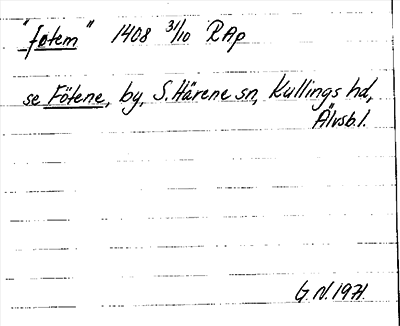 "føtem" 1408 3/10 RAp
se Fötene, by, S. Härene sn, Kullings hd,
Älvsb.l.
G.N. 1971.